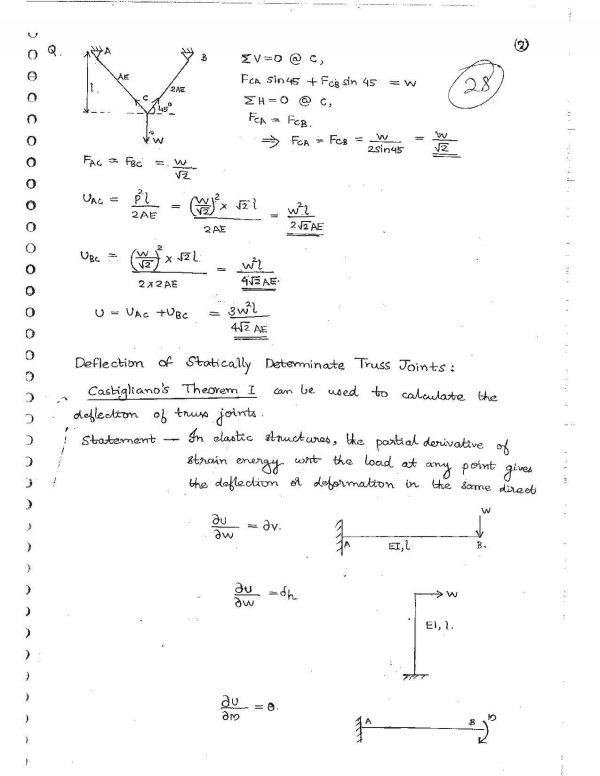 (7)
Q. A B
l AE C 2AE 45°
W
ΣV=0 @ C,
F_CA sin45 + F_CB sin 45 = W
28
ΣH=0 @ C,
F_CA = F_CB.
⇒ F_CA = F_CB = W/2sin45 = W/√2
F_AC = F_BC = W/√2
U_AC = P²l/2AE = (W/√2)² × √2 l/2AE = W²l/2√2 AE
U_BC = (W/√2)² × √2 l/2×2AE = W²l/4√2 AE.
U = U_AC + U_BC = 3W²l/4√2 AE
Deflection of Statically Determinate Truss Joints:
Castigliano's Theorem I can be used to calculate the
deflection of truss joints.
Statement — In elastic structures, the partial derivative of
strain energy wrt the load at any point gives
the deflection or deformation in the same direct
∂U/∂W = ∂v.
W
A EI, l B.
∂U/∂W = δh
W
EI, l.
∂U/∂M = θ.
A B M